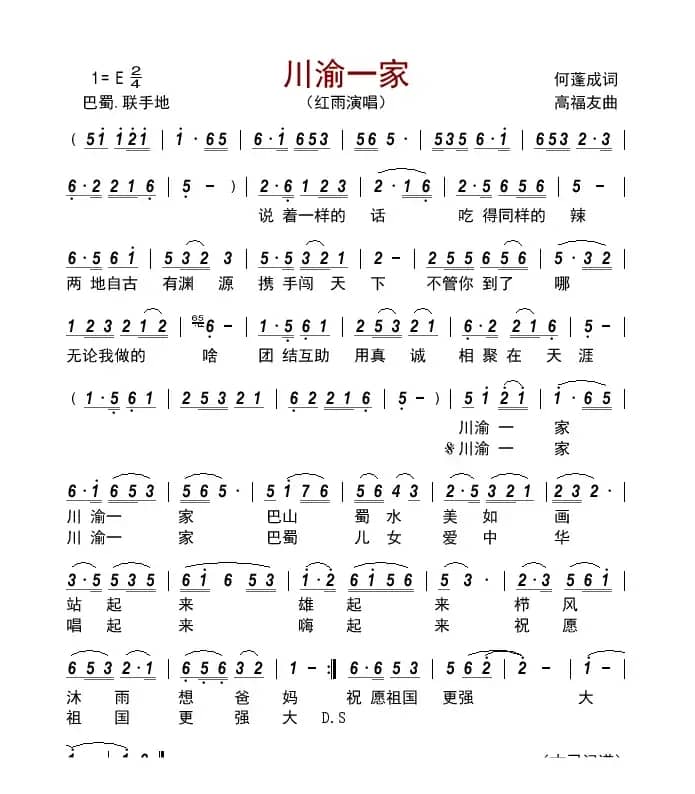 川渝一家
1=E 2/4
何蓬成词
巴蜀.联手地
（红雨演唱）
高福友曲
( 51 121 | 1·65 | 6·1 653 | 565· | 535 6·1 | 653 2·3 |
6·2 2216 | 5 - ) | 2·6 123 | 2·16 | 2·5 656 | 5 - |
说着一样的 话 吃得同样的 辣
6·5 61 | 532 3 | 6·5 321 | 2 - | 255 656 | 5·32 |
两地自古 有渊源 携手闯天 下 不管你到了 哪
123 212 | 65 6 - | 1·5 61 | 253 21 | 6·2 216 | 5 - |
无论我做的 啥 团结互助 用真诚 相聚在天 涯
( 1·5 61 | 25 321 | 62 216 | 5 - ) | 51 21 | 1·65 |
川渝一 家
𝄋川渝一 家
6·1 653 | 565· | 51 76 | 56 43 | 2·5 321 | 232· |
川渝一 家 巴山 蜀水 美如 画
川渝一 家 巴蜀 儿女 爱中 华
3·5 535 | 61 6 53 | 1·2 | 6156 | 5 3· | 2·3 565 |
站起 来 雄起 来 栉风
唱起 来 嗨起 来 祝愿
653 2·1 | 656 32 | 1 - :| 6·6 653 | 562 | 2 - | 1 - |
沐雨 想爸 妈 祝愿祖国 更强 大
祖国 更强 大 D.S